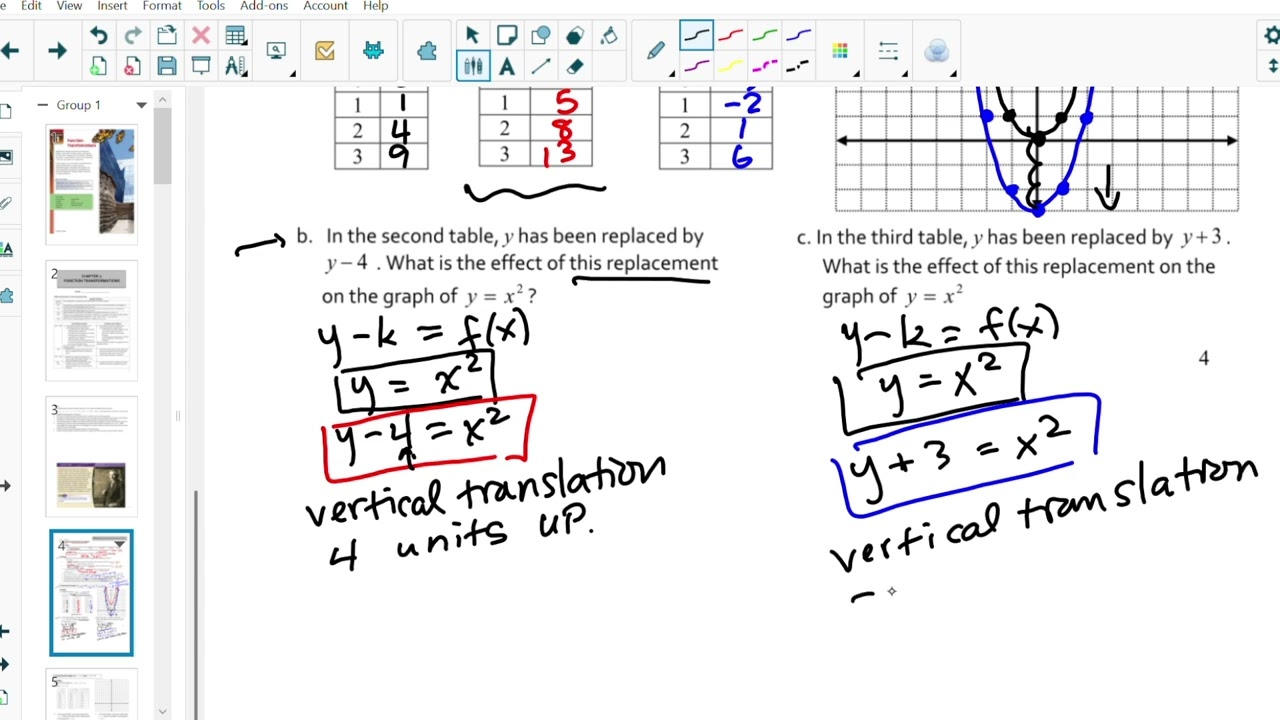 e Edit View Insert Format Tools Add-ons Account Help
Group 1
1 1
2 4
3 9
1 5
2 8
3 13
1 -2
2 1
3 6
b. In the second table, y has been replaced by
y − 4 . What is the effect of this replacement
on the graph of y = x² ?
y - k = f(x)
y = x²
y - 4 = x²
vertical translation
4 units up.
c. In the third table, y has been replaced by y + 3 .
What is the effect of this replacement on the
graph of y = x²
y - k = f(x)
y = x²
y + 3 = x²
vertical translation
4
2
3
4
5